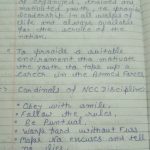 of organized, trained and
motivated youth, to provide
leadership in all walks of
life and always available
for the service of the
nation.
To provide a suitable
environment to motivate
the youth to take up a
career in the Armed Forces
Cardinals of NCC Discipline:
• Obey with smile.
• Follow the rules.
• Be Punctual.
• Work hard without Fuss
• Make No excuses and tell
no lies.